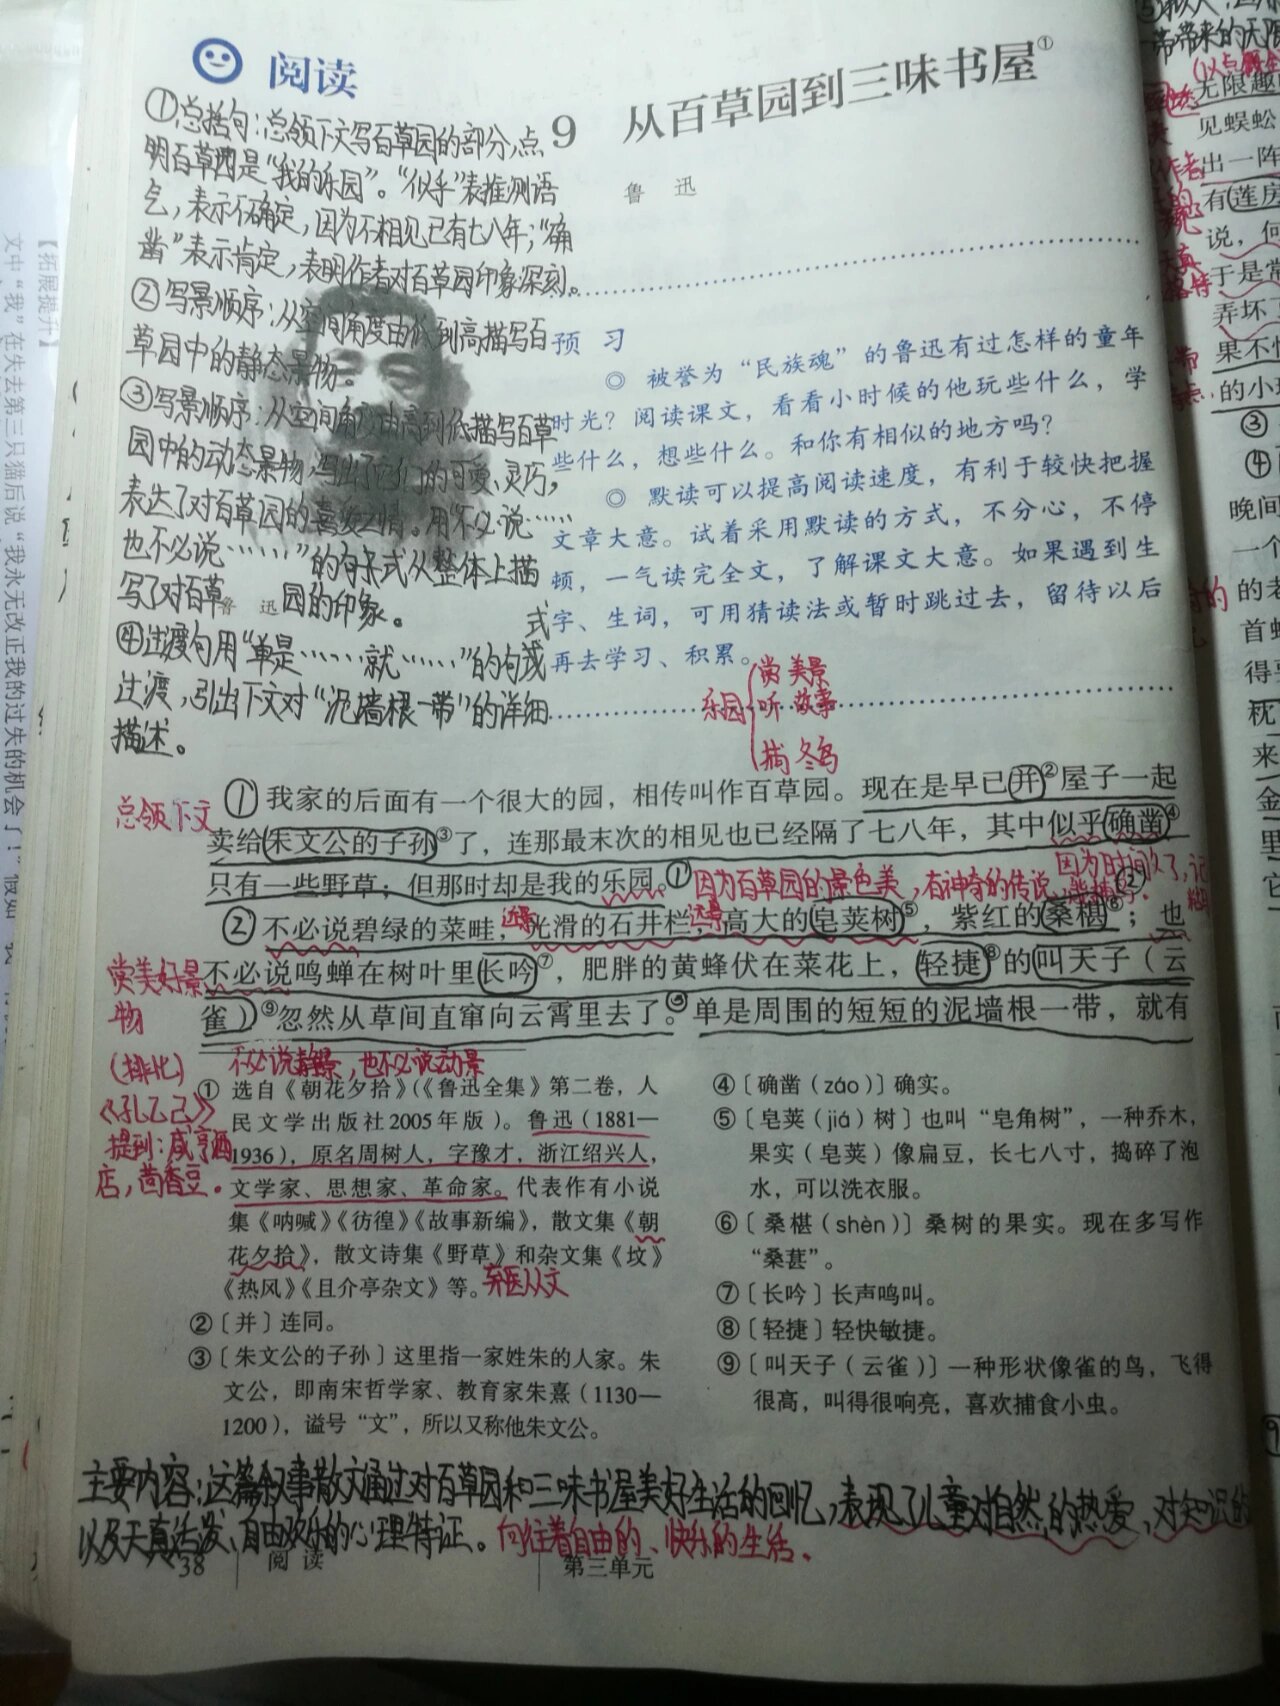 阅读
9 从百草园到三味书屋①
鲁 迅
①总括句：总领下文写百草园的部分，点
明百草园是“我的乐园”。“似乎”表推测语
气，表示不确定，因为不相见已有七八年；“确
凿”表示肯定，表明作者对百草园印象深刻。
②写景顺序：从空间角度由低到高描写百
草园中的静态景物。
③写景顺序：从空间角度由高到低描写百草
园中的动态景物，写出了它们的可爱、灵巧，
表达了对百草园的喜爱之情。用“不必说……
也不必说……”的句式从整体上描
写了对百草园的印象。
鲁 迅
④过渡句用“单是……就……”的句式
过渡，引出下文对“泥墙根一带”的详细
描述。
预 习
◎ 被誉为“民族魂”的鲁迅有过怎样的童年
时光？阅读课文，看看小时候的他玩些什么，学
些什么，想些什么。和你有相似的地方吗？
◎ 默读可以提高阅读速度，有利于较快把握
文章大意。试着采用默读的方式，不分心，不停
顿，一气读完全文，了解课文大意。如果遇到生
字、生词，可用猜读法或暂时跳过去，留待以后
再去学习、积累。
乐园
赏美景
听故事
捕冬鸟
总领下文
①我家的后面有一个很大的园，相传叫作百草园。现在是早已并②屋子一起
卖给朱文公的子孙③了，连那最末次的相见也已经隔了七八年，其中似乎确凿④
只有一些野草；但那时却是我的乐园。①
因为百草园的景色美，有神奇的传说
因为时间久了，记
②不必说碧绿的菜畦，光滑的石井栏，高大的皂荚树⑤，紫红的桑椹⑥；也
近景
远景
不必说鸣蝉在树叶里长吟⑦，肥胖的黄蜂伏在菜花上，轻捷⑧的叫天子（云
雀）⑨忽然从草间直窜向云霄里去了。③单是周围的短短的泥墙根一带，就有
赏美好景
物
（排比）
不必说静景，也不必说动景
《孔乙己》
提到：咸亨酒
店，茴香豆。
① 选自《朝花夕拾》（《鲁迅全集》第二卷，人
民文学出版社2005年版）。鲁迅（1881—
1936），原名周树人，字豫才，浙江绍兴人，
文学家、思想家、革命家。代表作有小说
集《呐喊》《彷徨》《故事新编》，散文集《朝
花夕拾》，散文诗集《野草》和杂文集《坟》
《热风》《且介亭杂文》等。
弃医从文
②〔并〕连同。
③〔朱文公的子孙〕这里指一家姓朱的人家。朱
文公，即南宋哲学家、教育家朱熹（1130—
1200），谥号“文”，所以又称他朱文公。
④〔确凿（záo）〕确实。
⑤〔皂荚（jiá）树〕也叫“皂角树”，一种乔木，
果实（皂荚）像扁豆，长七八寸，捣碎了泡
水，可以洗衣服。
⑥〔桑椹（shèn）〕桑树的果实。现在多写作
“桑葚”。
⑦〔长吟〕长声鸣叫。
⑧〔轻捷〕轻快敏捷。
⑨〔叫天子（云雀）〕一种形状像雀的鸟，飞得
很高，叫得很响亮，喜欢捕食小虫。
主要内容：这篇叙事散文通过对百草园和三味书屋美好生活的回忆，表现了儿童对自然的热爱，对知识的
以及天真活泼、自由欢乐的心理特征。向往着自由的、快乐的生活。
38 阅 读 第三单元
【拓展提升】
文中“我”在失去第三只猫后说“我永无改正我的过失的机会了！”
带带来的无限
无限趣
见蜈蚣
出一阵
有莲房
说，何
于是常
弄坏了
果不
的小
③
④
晚间
一个
的老
首
得
枕
来
金
里
它